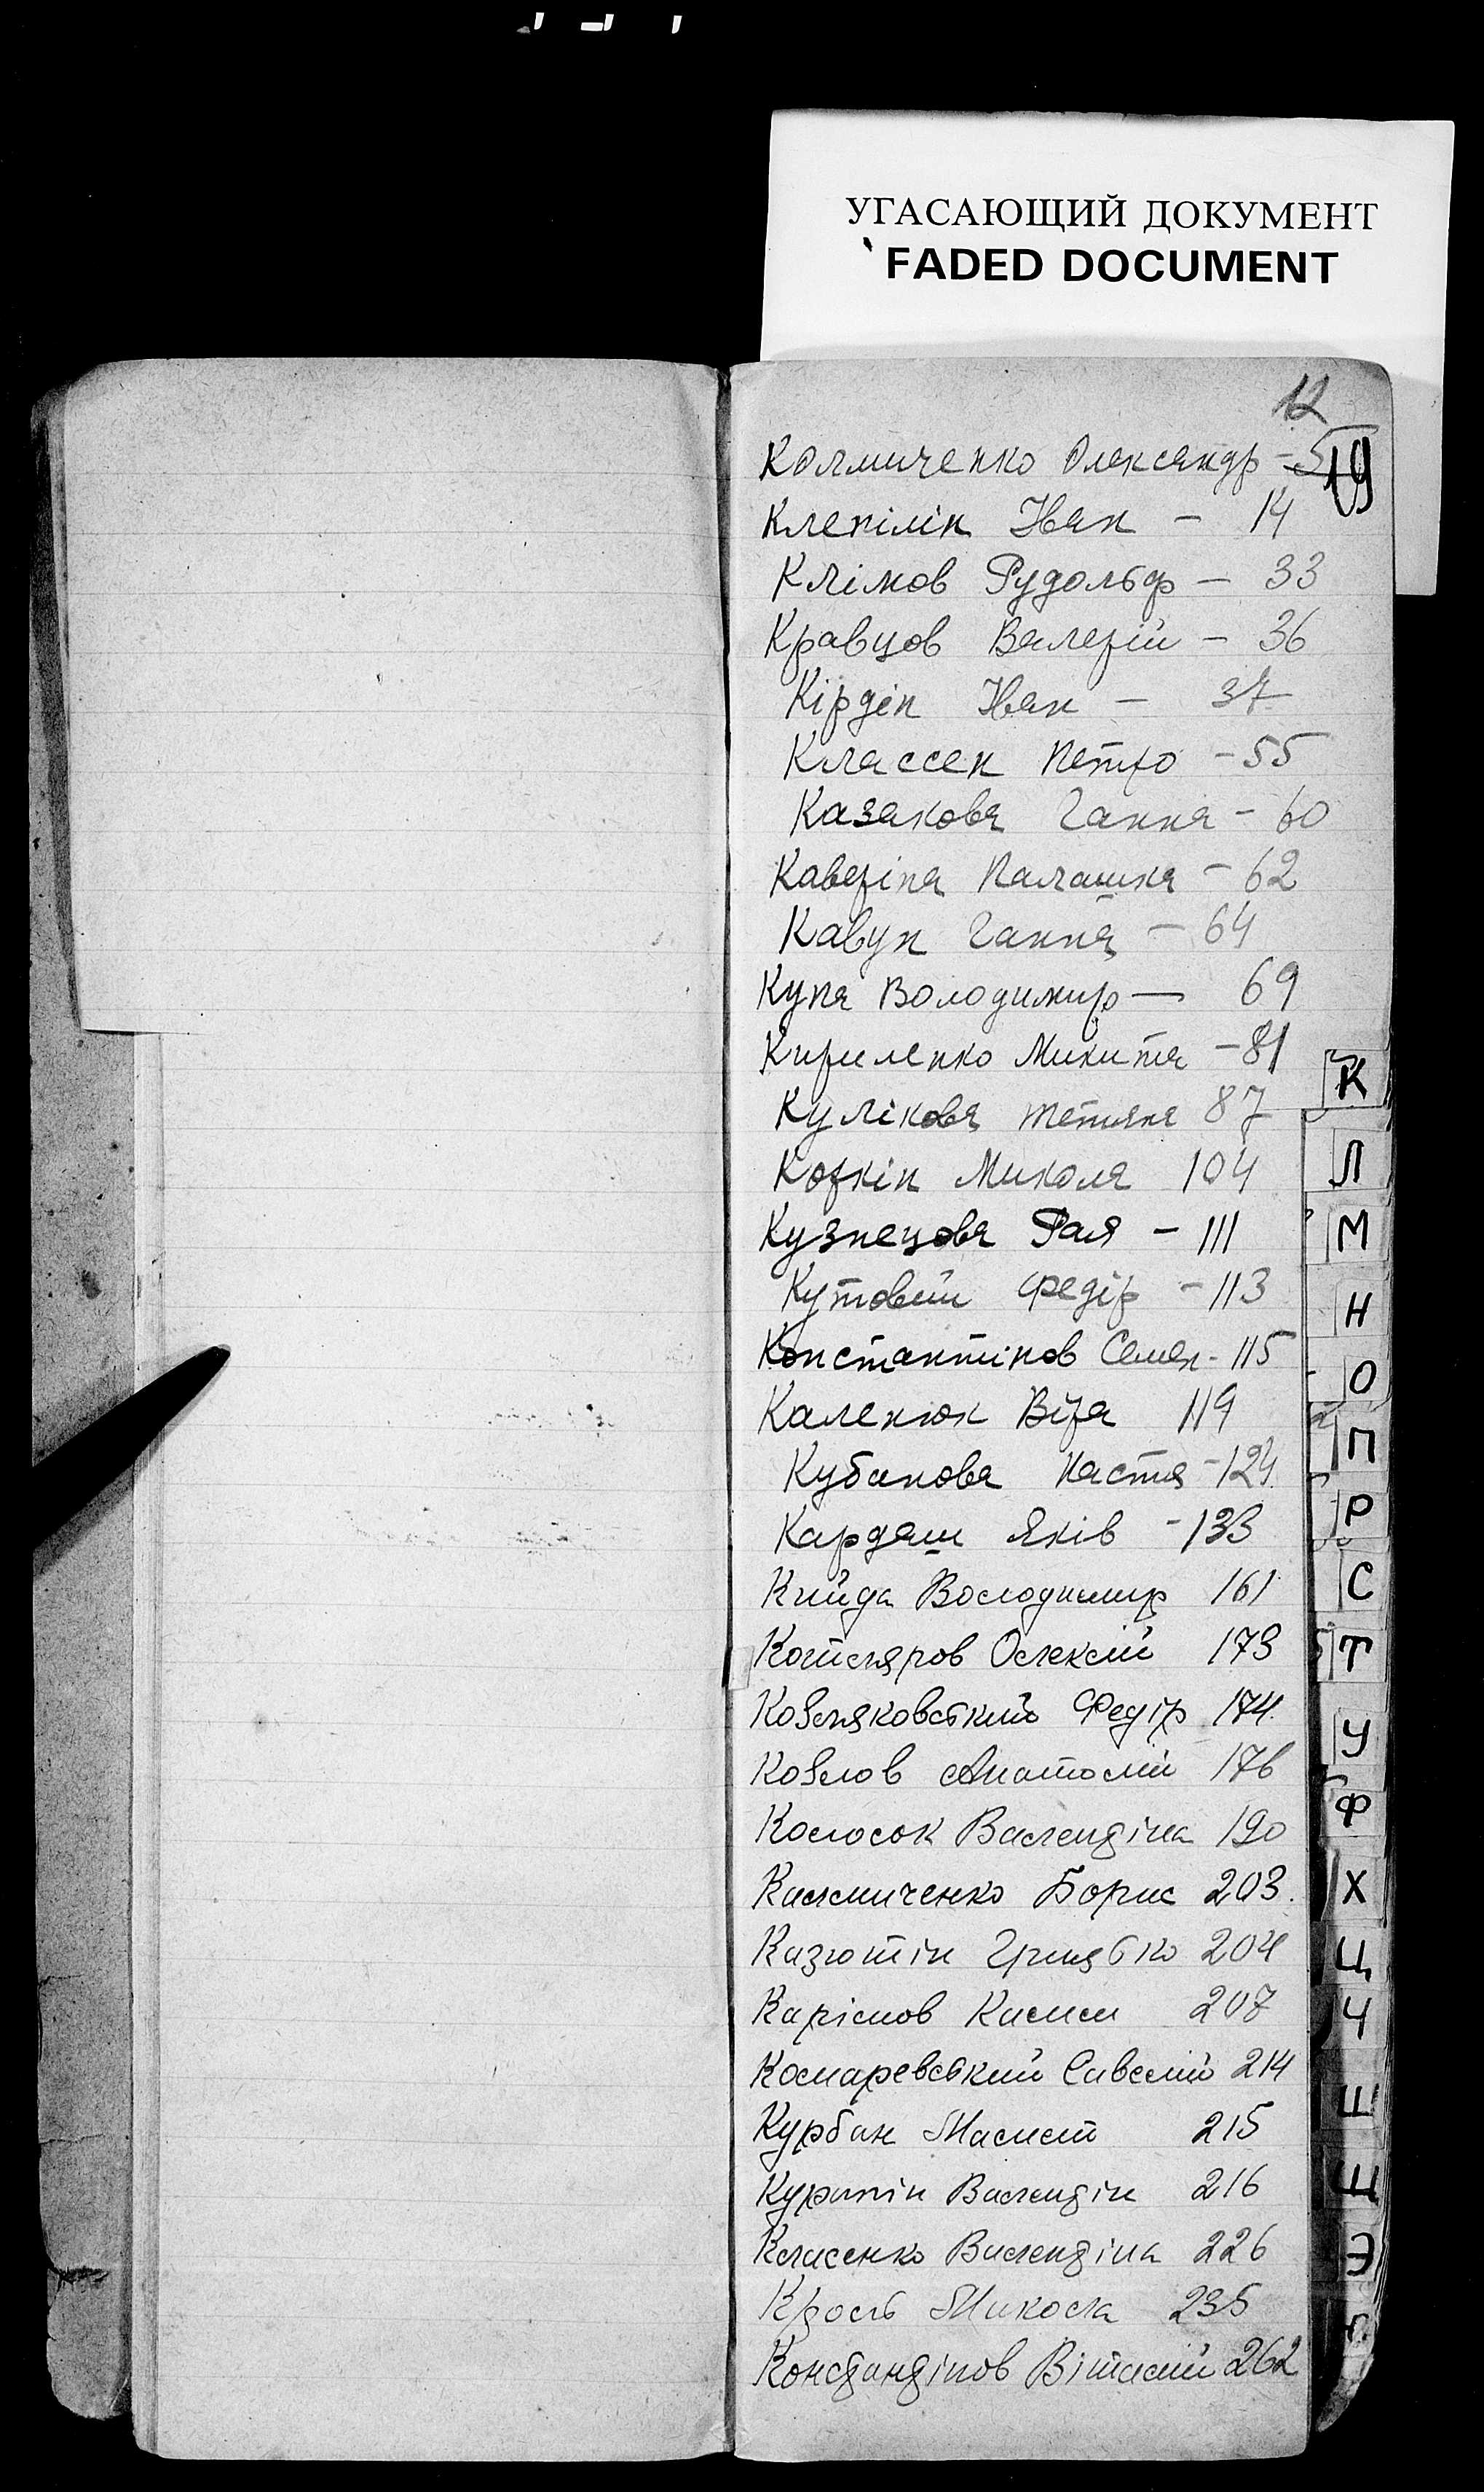 УГАСАЮЩИЙ ДОКУМЕНТ
FADED DOCUMENT
12
19
Колмиченко Олександр - 5
Клепілін Іван - 14
Клімов Рудольф - 33
Кравцов Валерій - 36
Кірдін Іван - 37
Классен Петро - 55
Казакова Ганна - 60
Каверіна Палашка - 62
Кавун Ганна - 64
Купа Володимир - 69
Кириленко Микита - 81
Кулікова Тетяна 87
Коркін Микола 104
Кузнецова Рая - 111
Кутовий Федір - 113
Константінов Семен - 115
Каленюк Віра 119
Кубанова Настя - 124
Кардаш Яків - 133
Кийда Володимир 161
Котляров Олексій 173
Козляковський Федір 174
Козлов Анатолій 176
Колосок Валентіна 190
Калмиченко Борис 203
Казютін Грицько 204
Карімов Калим 207
Комаревський Савелій 214
Курбан Мамет 215
Курапін Валентін 216
Класенко Валентіна 226
Кроль Микола 235
Константінов Віталій 262
К
Л
М
Н
О
П
Р
С
Т
У
Ф
Х
Ц
Ч
Ш
Щ
Э